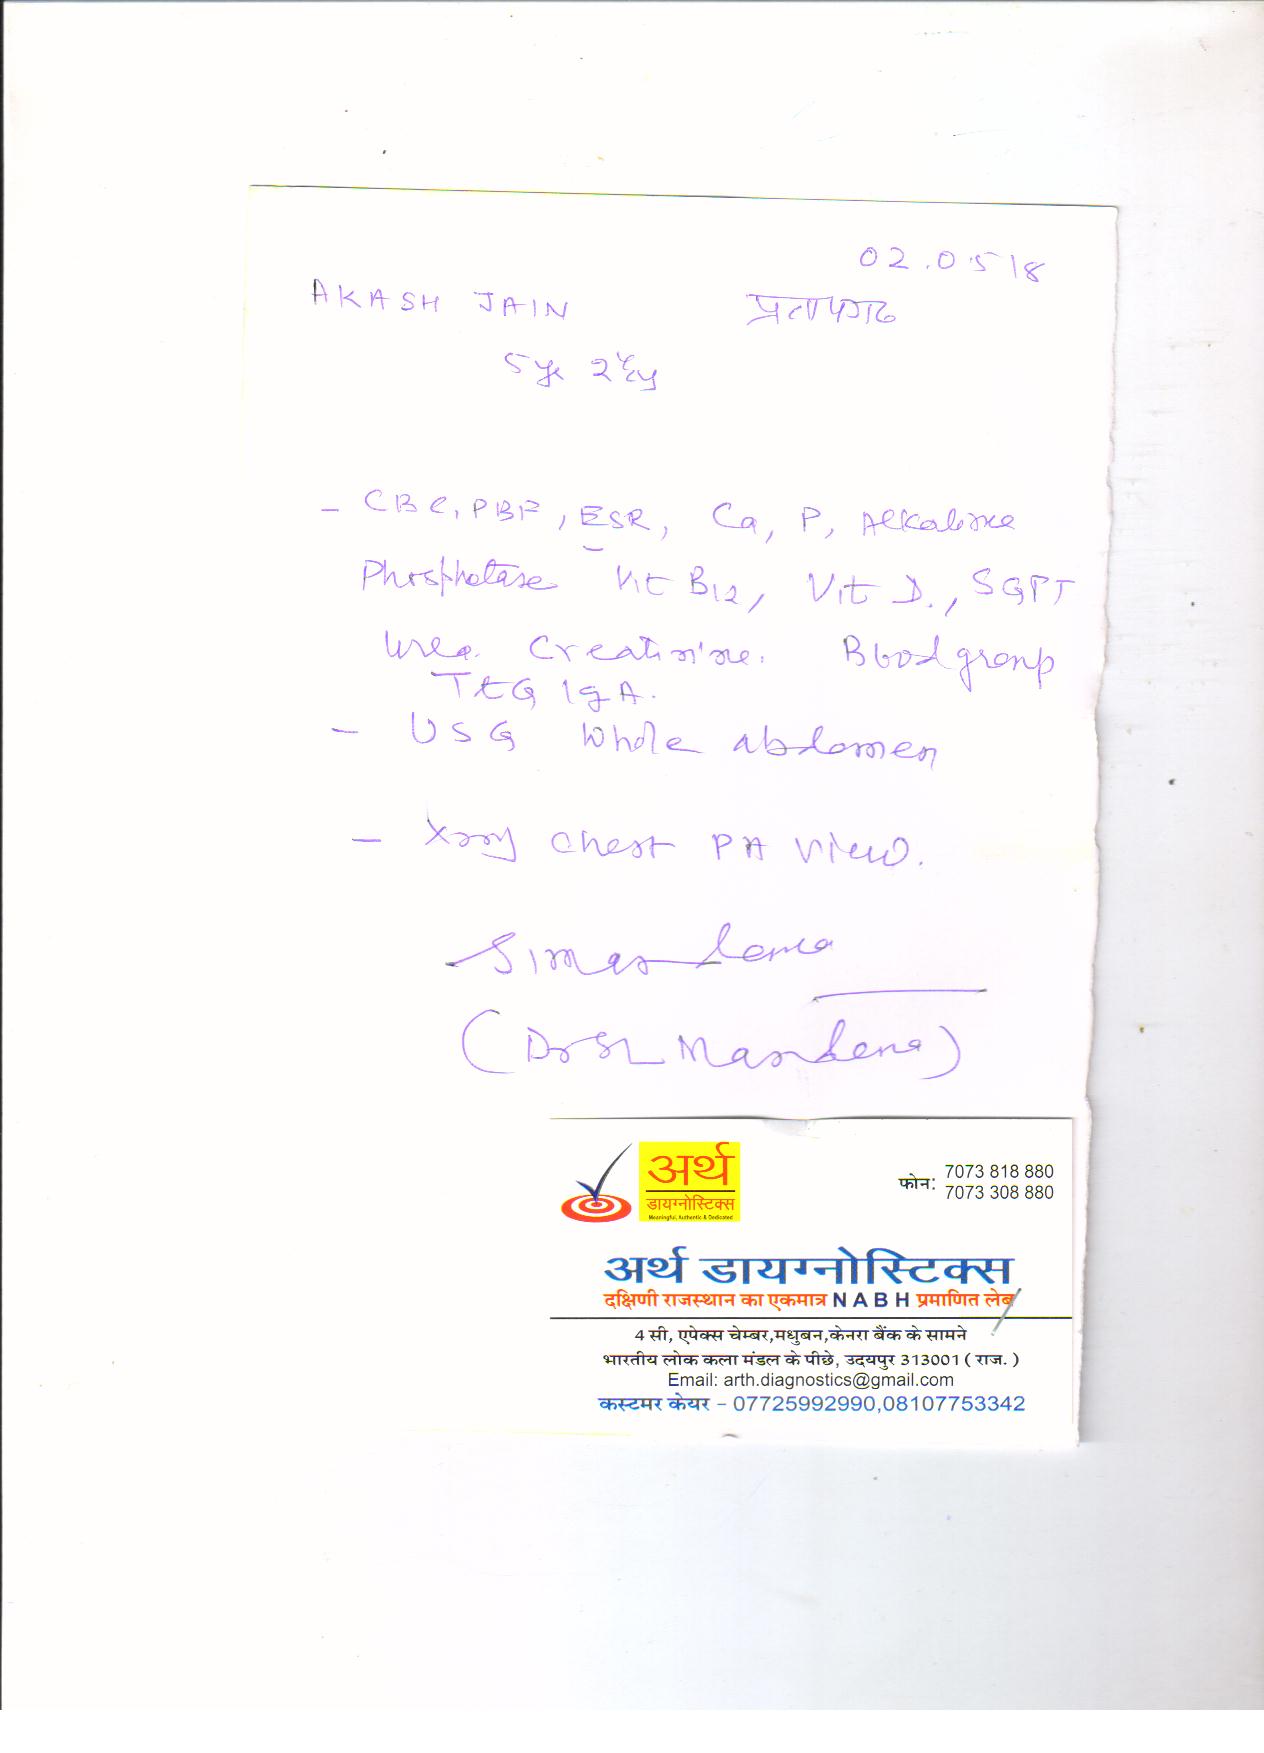 02.05.18
AKASH JAIN
5 yr
- CBC, PBF, ESR, Ca, P, Alkaline
Phosphatase Vit B12, Vit D., SGPT
Urea. Creatinine. Blood group
TtG IgA.
- USG Whole abdomen
- Xray Chest PA View.
(Dr SL Mandena)
अर्थ
डायग्नोस्टिक्स
Meaningful, Authentic & Dedicated
फोन: 7073 818 880
7073 308 880
अर्थ डायग्नोस्टिक्स
दक्षिणी राजस्थान का एकमात्र NABH प्रमाणित लेब
4 सी, एपेक्स चेम्बर,मधुबन,केनरा बैंक के सामने
भारतीय लोक कला मंडल के पीछे, उदयपुर 313001 ( राज. )
Email: arth.diagnostics@gmail.com
कस्टमर केयर - 07725992990,08107753342